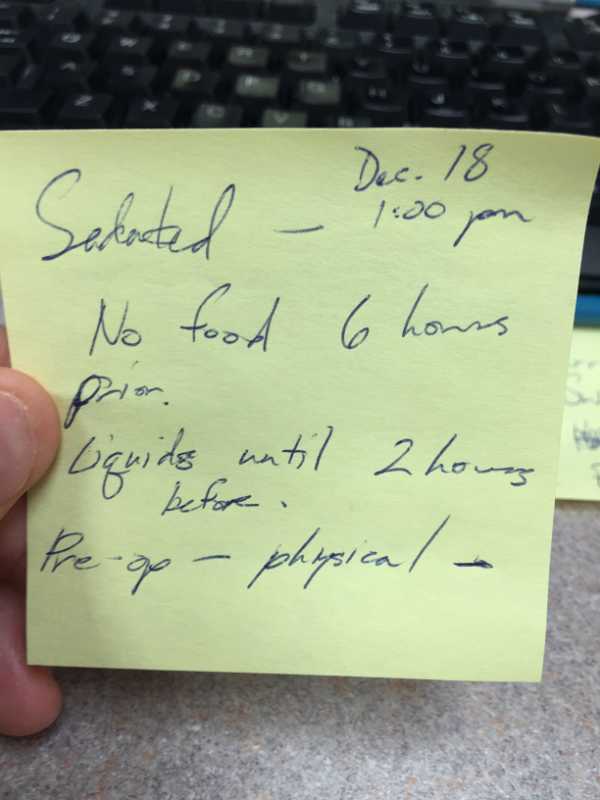 Dec. 18
1:00 pm
Sedated —
No food 6 hours
prior.
Liquids until 2 hours
before.
Pre-op — physical -